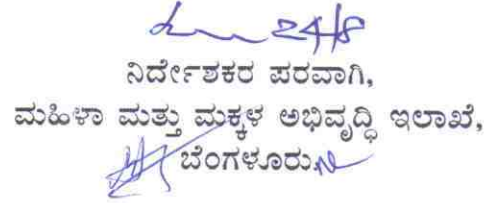 24/8
ನಿರ್ದೇಶಕರ ಪರವಾಗಿ,
ಮಹಿಳಾ ಮತ್ತು ಮಕ್ಕಳ ಅಭಿವೃದ್ಧಿ ಇಲಾಖೆ,
ಬೆಂಗಳೂರು.